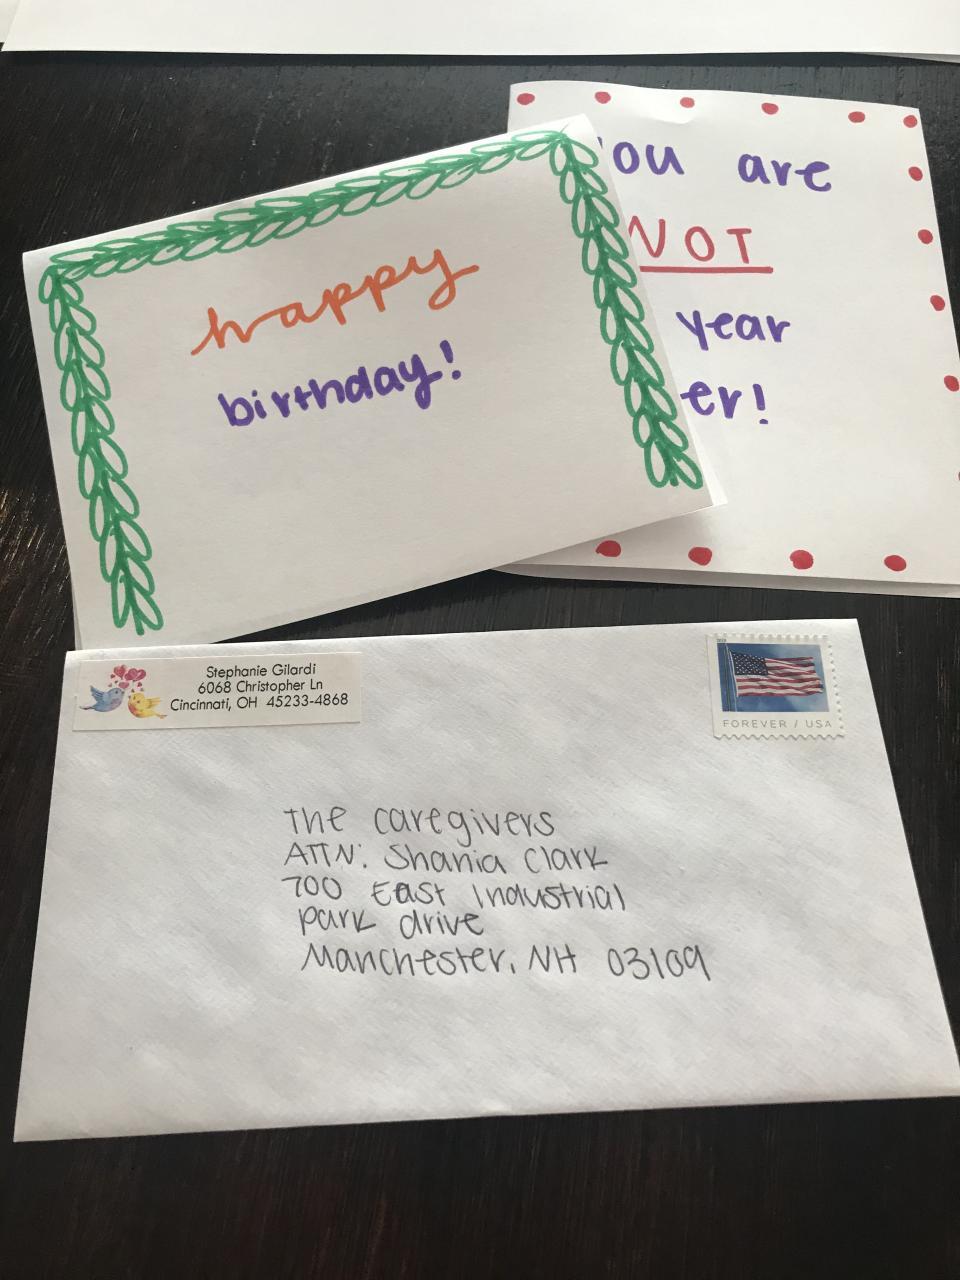 happy
birthday!
ou are
NOT
year
er!
Stephanie Gilardi
6068 Christopher Ln
Cincinnati, OH 45233-4868
FOREVER / USA
The caregivers
ATTN: Shania Clark
700 East Industrial
park drive
Manchester, NH 03109